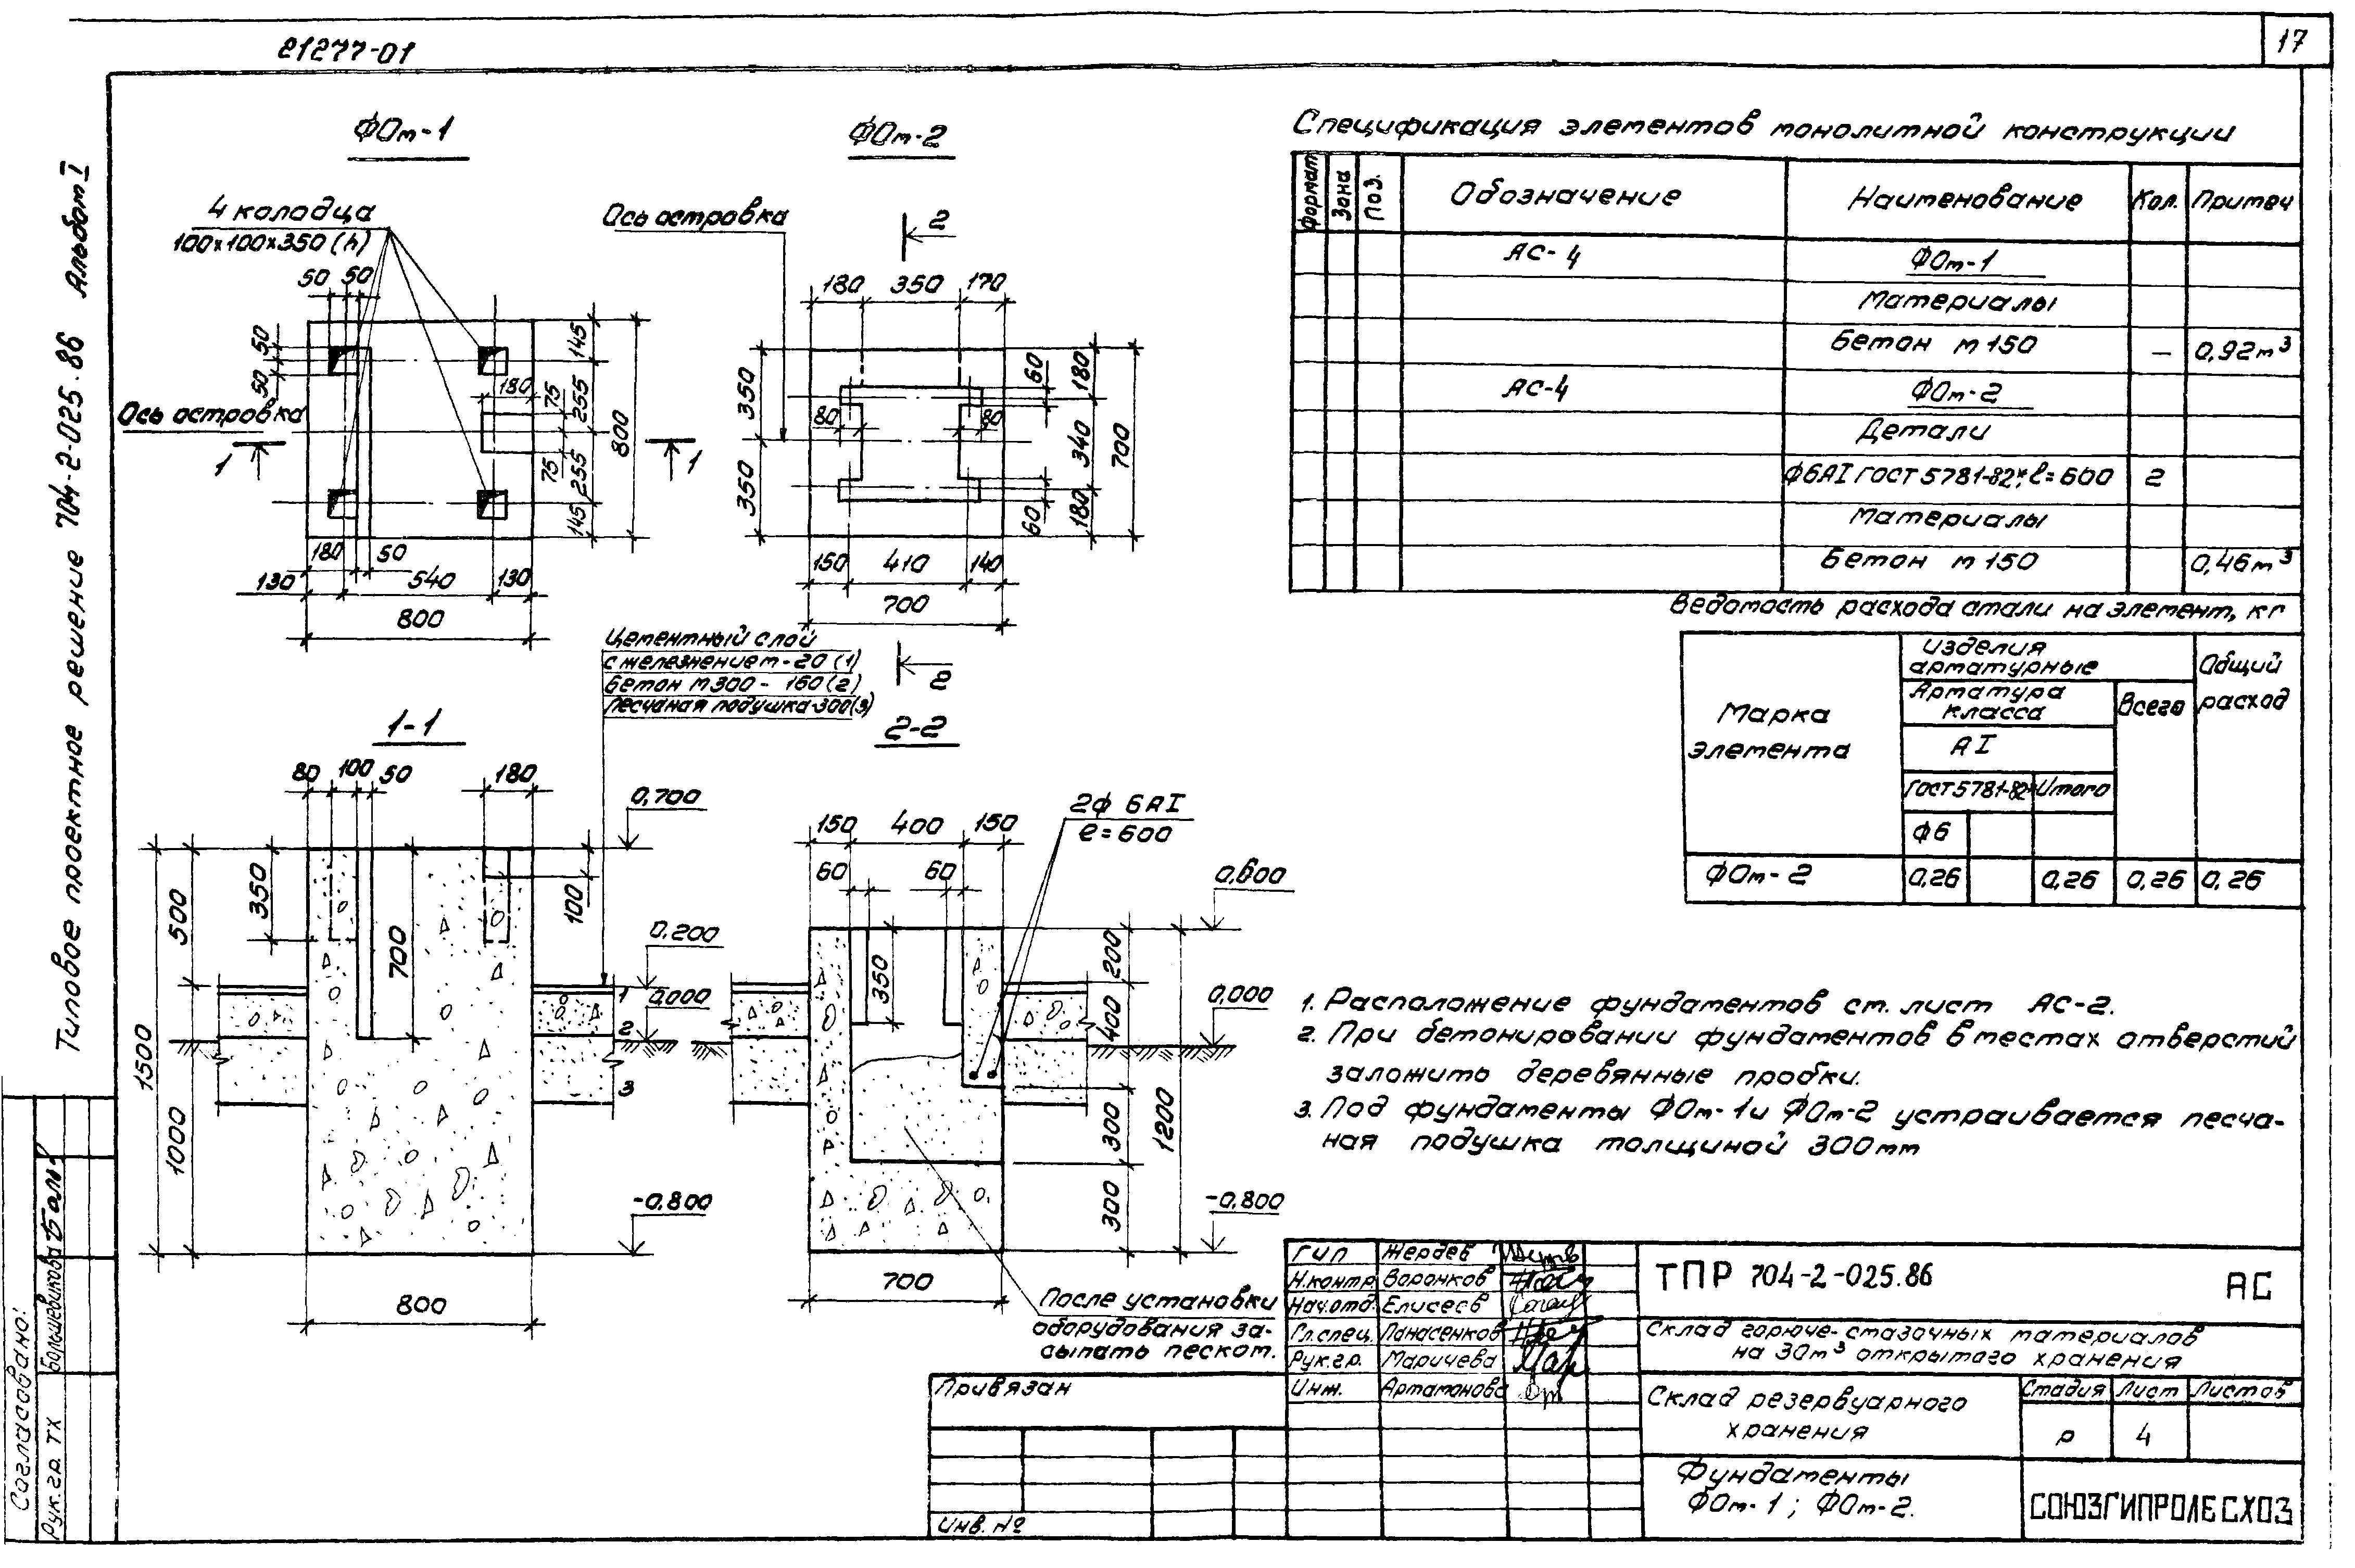 21277-01
17
Типовое проектное решение 704-2-025.86 Альбом I
ФОм-1
4 колодца
100х100х350(h)
50 50
50
50
Ось островка
1
1
180
75
75
145
255
255
145
800
180 50
130 540 130
800
ФОм-2
Ось островка
2
180 350 170
350
350
80
80
60
60
180
340
180
700
150 410 140
700
2
Цементный слой
с железнением-20 (1)
Бетон М300 - 160(2)
Песчаная подушка-300(3)
1-1
80 100 50 180
0,700
350
500
700
100
0.200
1
0,000
2
3
1500
1000
-0,800
800
2-2
150 400 150
2ф 6АI
ℓ=600
60 60
0,600
350
200
400
0,000
300
1200
300
-0,800
700
После установки
оборудования за-
сыпать песком.
Спецификация элементов монолитной конструкции
Формат Зона Поз. Обозначение Наименование Кол. Примеч
АС-4 ФОм-1
Материалы
Бетон М150 — 0,92м³
АС-4 ФОм-2
Детали
ф6АI ГОСТ 5781-82*, ℓ=600 2
Материалы
Бетон М150 0,46м³
Ведомость расхода стали на элемент, кг
Марка
элемента
Изделия
арматурные
Общий
расход
Арматура
класса
Всего
АI
ГОСТ 5781-82* Итого
ф6
ФОм-2 0,26 0,26 0,26 0,26
1. Расположение фундаментов см. лист АС-2.
2. При бетонировании фундаментов в местах отверстий
заложить деревянные пробки.
3. Под фундаменты ФОм-1 и ФОм-2 устраивается песча-
ная подушка толщиной 300мм
Согласовано:
Рук. гр. ТХ Большевикова
ГИП Жердев
Н.контр Воронков
Нач.отд. Елисеев
Гл.спец. Панасенков
Рук.гр. Маричева
Инж. Артамонова
ТПР 704-2-025.86
АС
Склад горюче-смазочных материалов
на 30м³ открытого хранения
Склад резервуарного
хранения
Стадия Лист Листов
р 4
Фундаменты
ФОм-1; ФОм-2.
СОЮЗГИПРОЛЕСХОЗ
Привязан
Инв. №